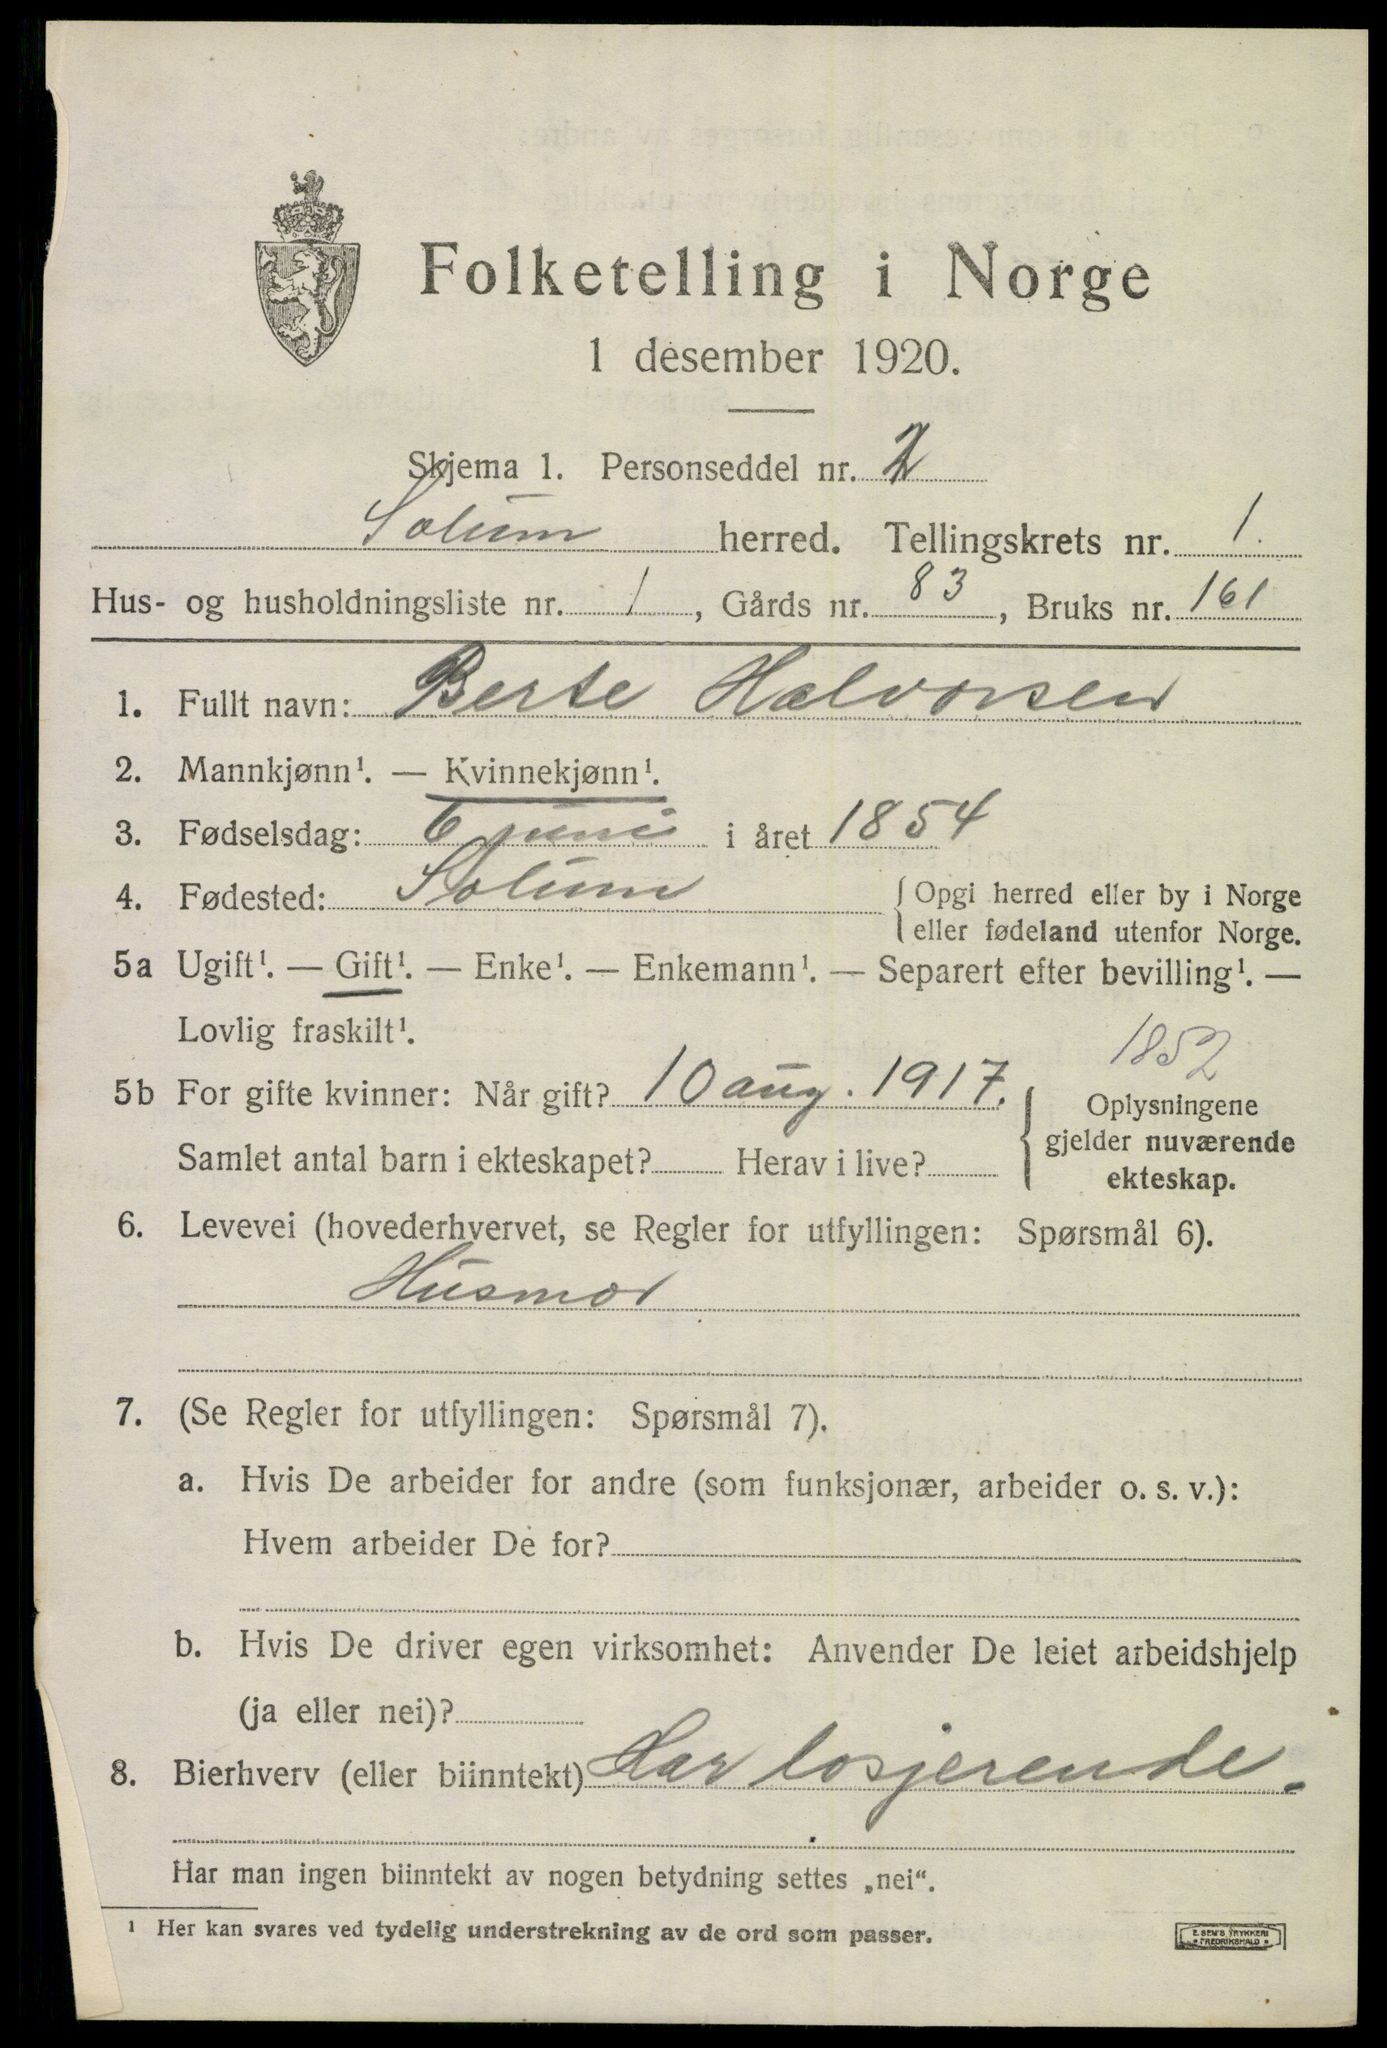 Folketelling i Norge
1 desember 1920.
Skjema 1. Personseddel nr. 2
Solum herred. Tellingskrets nr. 1.
Hus- og husholdningsliste nr. 1, Gårds nr. 83, Bruks nr. 161
1. Fullt navn: Berte Halvorsen
2. Mannkjønn¹. — Kvinnekjønn¹.
3. Fødselsdag: 6 juni i året 1854
4. Fødested: Solum { Opgi herred eller by i Norge
eller fødeland utenfor Norge.
5a Ugift¹. — Gift¹. — Enke¹. — Enkemann¹. — Separert efter bevilling¹. —
Lovlig fraskilt¹.
1852
5b For gifte kvinner: Når gift? 10 aug. 1917. { Oplysningene
gjelder nuværende
Samlet antal barn i ekteskapet? Herav i live?
ekteskap.
6. Levevei (hovederhvervet, se Regler for utfyllingen: Spørsmål 6).
Husmor
7. (Se Regler for utfyllingen: Spørsmål 7).
a. Hvis De arbeider for andre (som funksjonær, arbeider o. s. v.):
Hvem arbeider De for?
b. Hvis De driver egen virksomhet: Anvender De leiet arbeidshjelp
(ja eller nei)?
8. Bierhverv (eller biinntekt) Har losjerende.
Har man ingen biinntekt av nogen betydning settes „nei“.
¹ Her kan svares ved tydelig understrekning av de ord som passer.
E. SEM'S TRYKKERI
FREDRIKSHALD